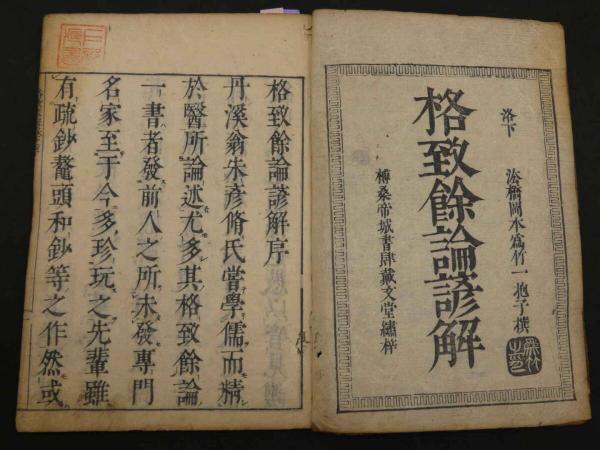 洛下
法橋岡本爲竹一抱子撰
格致餘論諺解
榑桑帝城書肆戴文堂繡梓
格致餘論諺解序
丹溪翁朱彦脩氏嘗學儒而精
於醫所論述尤多其格致餘論
一書者發前人之所未發專門
名家至于今多珍玩之先輩雖
有疏鈔鼇頭和鈔等之作然或